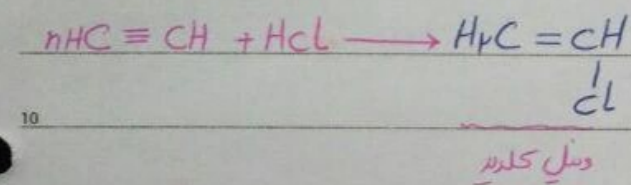 nHC ≡ CH + HCl ⟶ H۲C = CH
Cl
10
وینیل کلرید